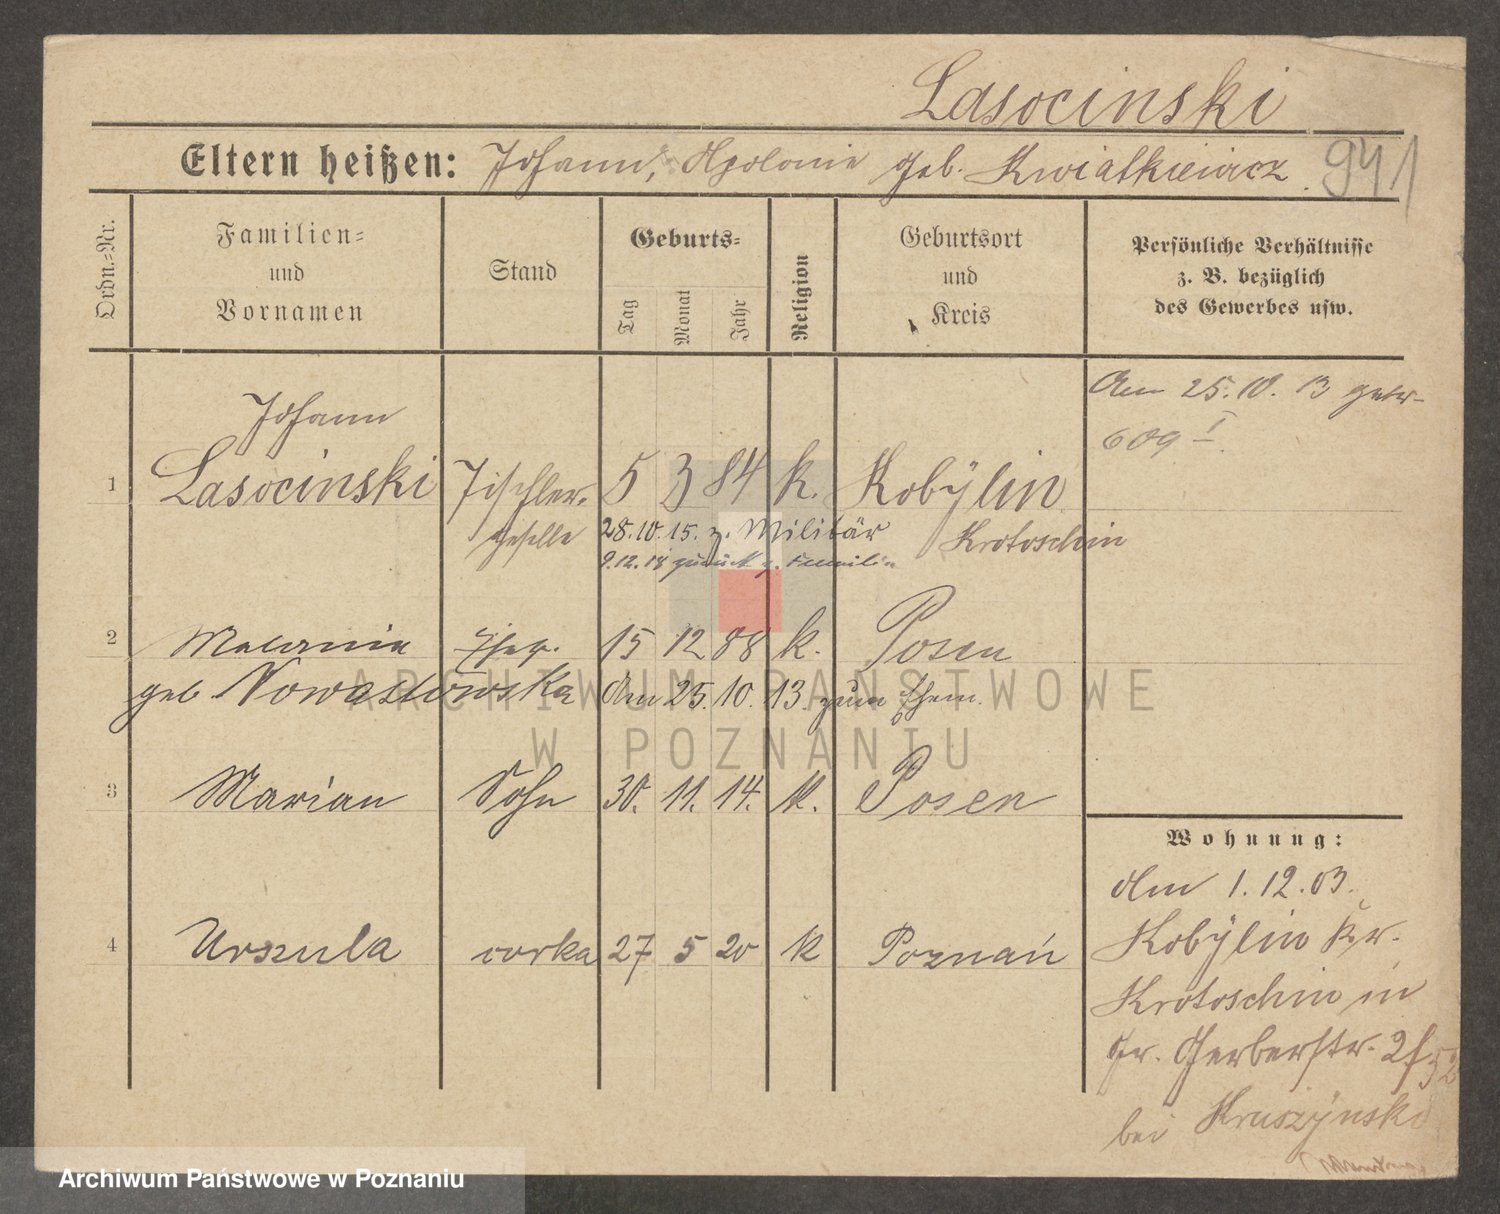 Lasocinski
Eltern heißen: Johann, Apolonia geb. Kwiatkiewicz. 941
Ordn.-Nr.
Familien- und Vornamen
Stand
Geburts-
Tag
Monat
Jahr
Religion
Geburtsort und Kreis
Persönliche Verhältnisse
z. B. bezüglich
des Gewerbes usw.
Am 25. 10. 13 getr.
609 I
Johann
1 Lasocinski Tischler- 5 3 84 k. Kobylin
geselle 28.10.15. z. Militär Krotoschin
9.12.18 zurück z. Familie
2 Melania Ehefr. 15 12 88 k. Posen
geb Nowastowska Am 25. 10. 13. zum Ehem.
3 Marian Sohn 30. 11. 14. k. Posen
Wohnung:
Am 1. 12. 03.
4 Urszula corka 27 5 20 k Poznań
Kobylin Kr.
Krotoschin in
Gr. Gerberstr. 52
bei Kruszynski
ARCHIWUM PAŃSTWOWE
W POZNANIU
Archiwum Państwowe w Poznaniu